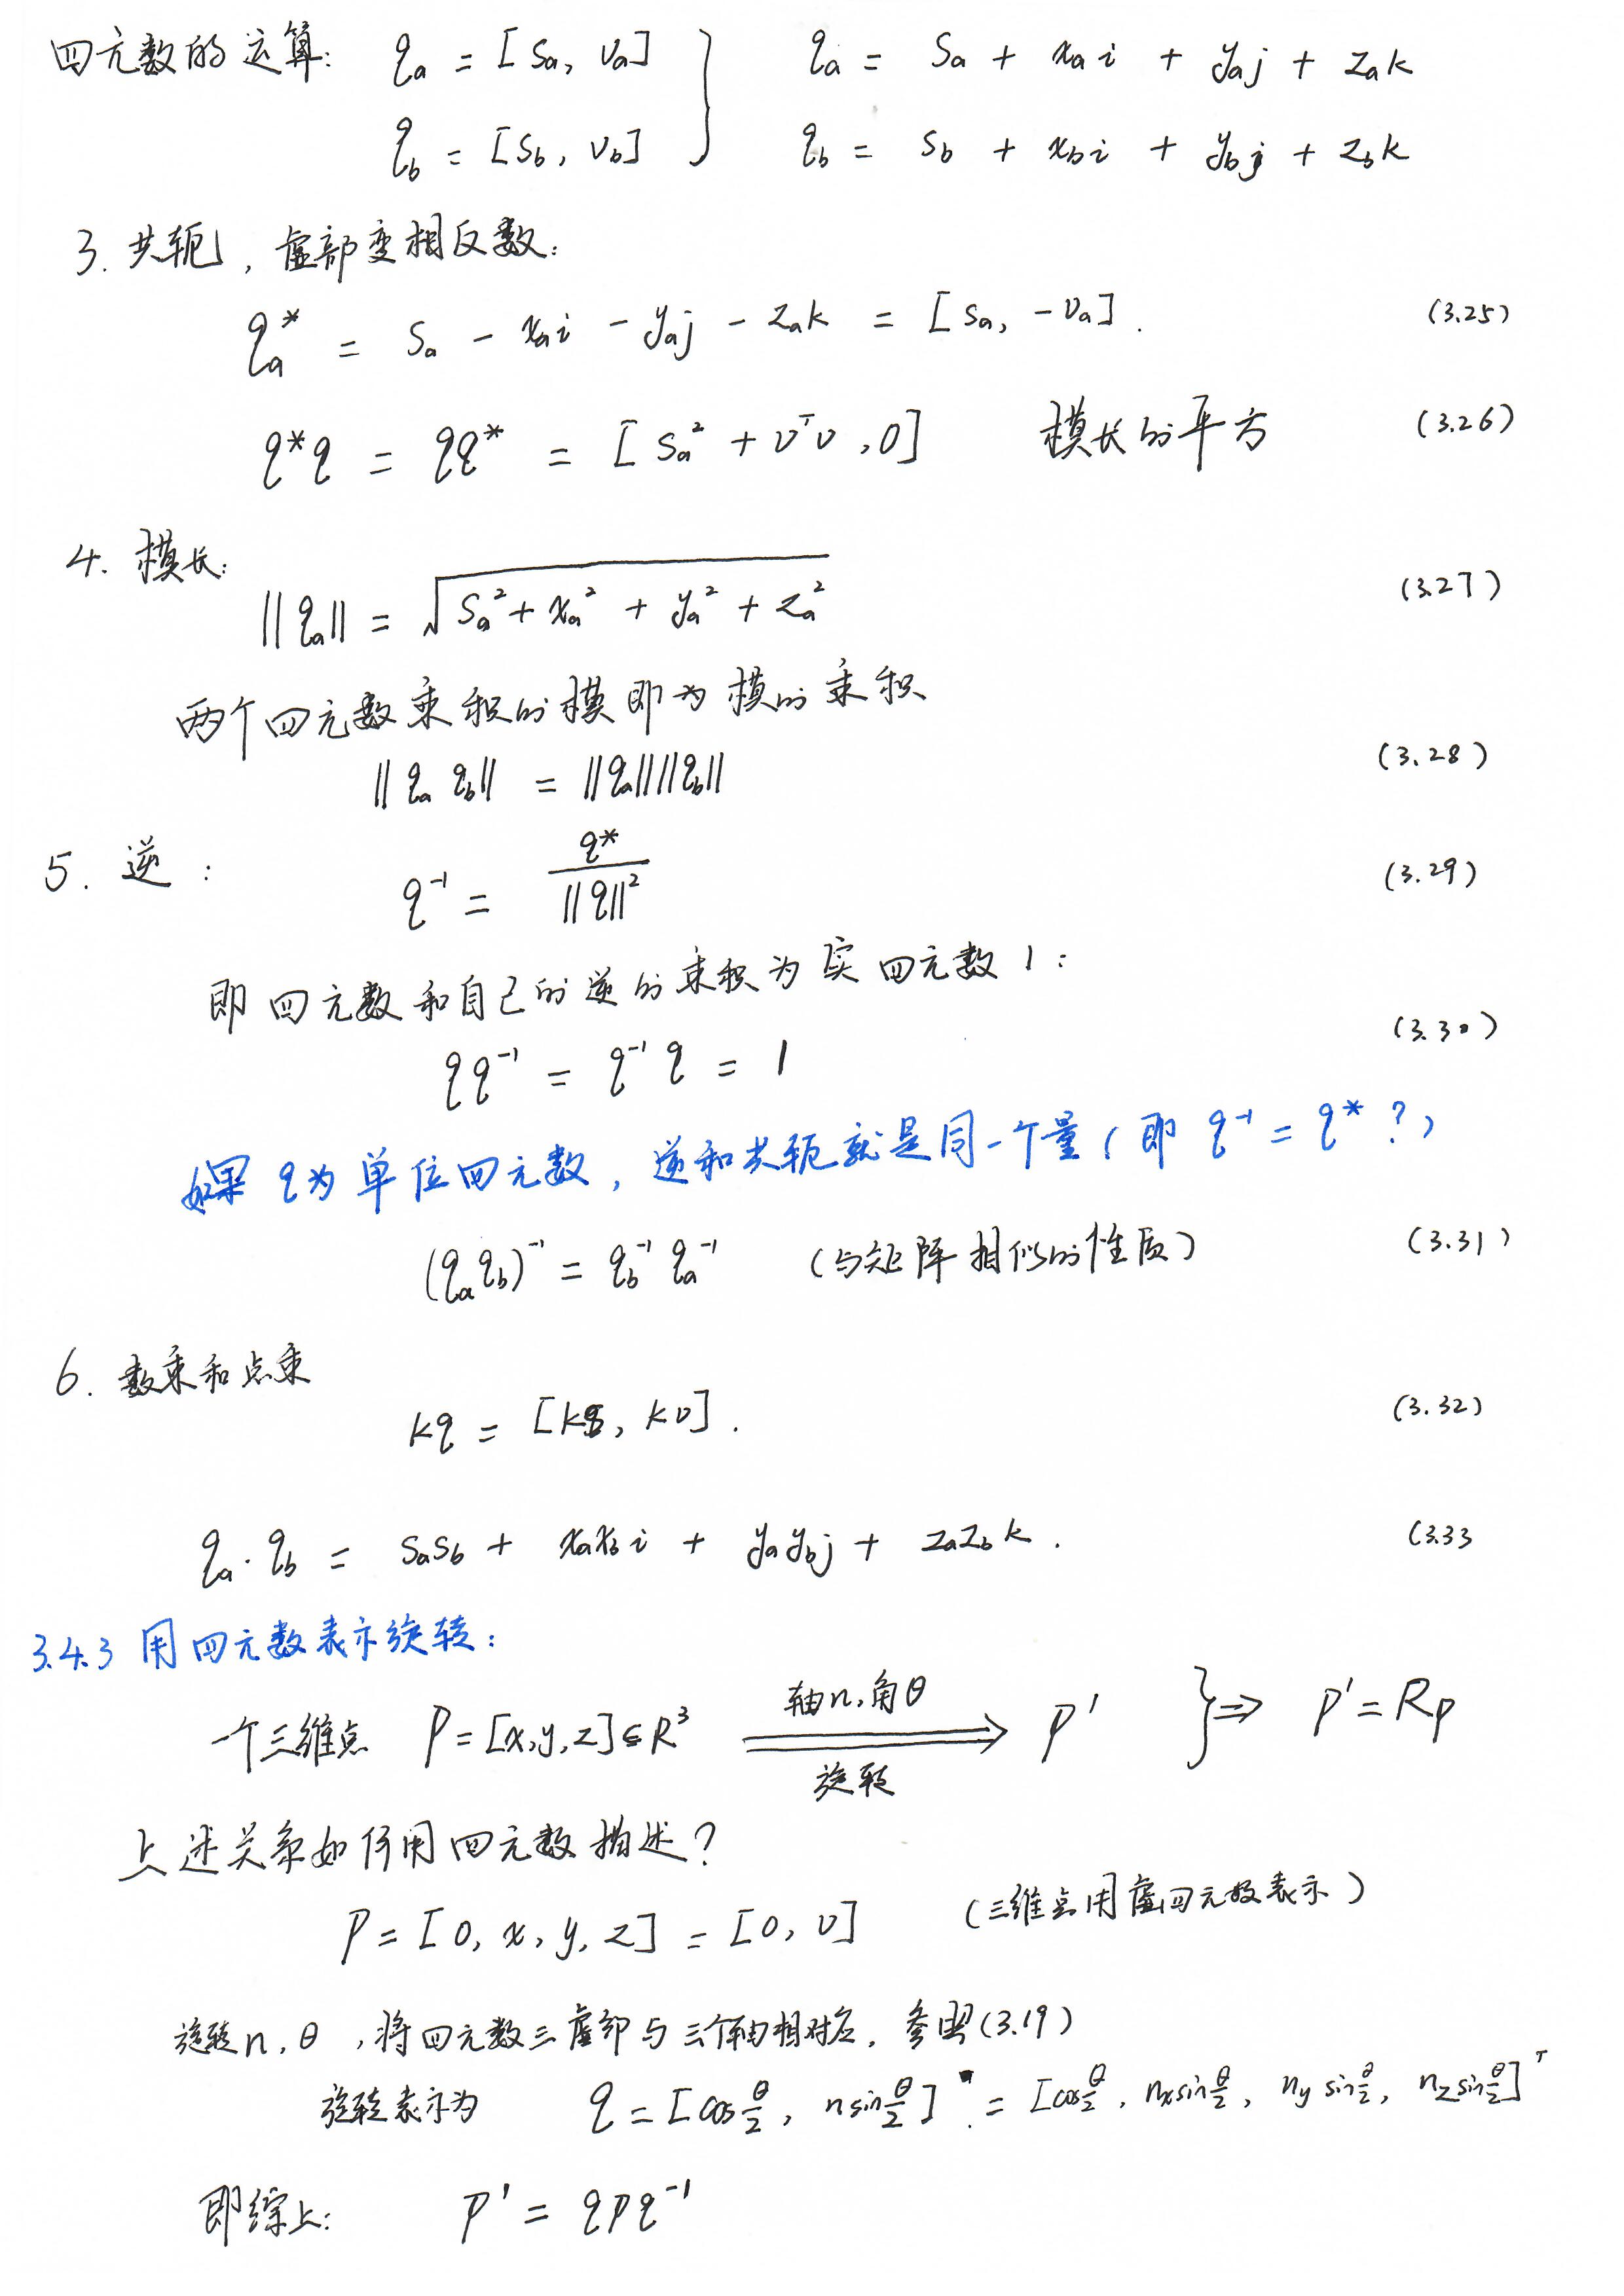 四元数的运算: qₐ = [sₐ, vₐ] } qₐ = sₐ + xₐi + yₐj + zₐk
q_b = [s_b, v_b] q_b = s_b + x_b i + y_b j + z_b k
3. 共轭, 虚部变相反数:
qₐ* = sₐ - xₐi - yₐj - zₐk = [sₐ, -vₐ]. (3.25)
q*q = qq* = [sₐ² + vᵀv, 0] 模长的平方 (3.26)
4. 模长:
||qₐ|| = √(sₐ² + xₐ² + yₐ² + zₐ²) (3.27)
两个四元数乘积的模即为模的乘积
||qₐ q_b|| = ||qₐ|| ||q_b|| (3.28)
5. 逆:
q⁻¹ = q* / ||q||² (3.29)
即四元数和自己的逆的乘积为实四元数1:
qq⁻¹ = q⁻¹q = 1 (3.30)
如果q为单位四元数, 逆和共轭就是同一个量(即 q⁻¹ = q* ?)
(qₐq_b)⁻¹ = q_b⁻¹ qₐ⁻¹ (与矩阵相似的性质) (3.31)
6. 数乘和点乘
kq = [ks, kv]. (3.32)
qₐ · q_b = sₐs_b + xₐx_b i + yₐy_b j + zₐz_b k. (3.33
3.4.3 用四元数表示旋转:
一个三维点 P = [x, y, z] ∈ R³ 轴n, 角θ ⟹ 旋转 P' } ⇒ P' = RP
上述关系如何用四元数描述?
P = [0, x, y, z] = [0, v] (三维点用虚四元数表示)
旋转n, θ, 将四元数三虚部与三个轴相对应, 参照(3.19)
旋转表示为 q = [cos θ/2, n sin θ/2] = [cos θ/2, nₓ sin θ/2, n_y sin θ/2, n_z sin θ/2]ᵀ
即综上: P' = qPq⁻¹